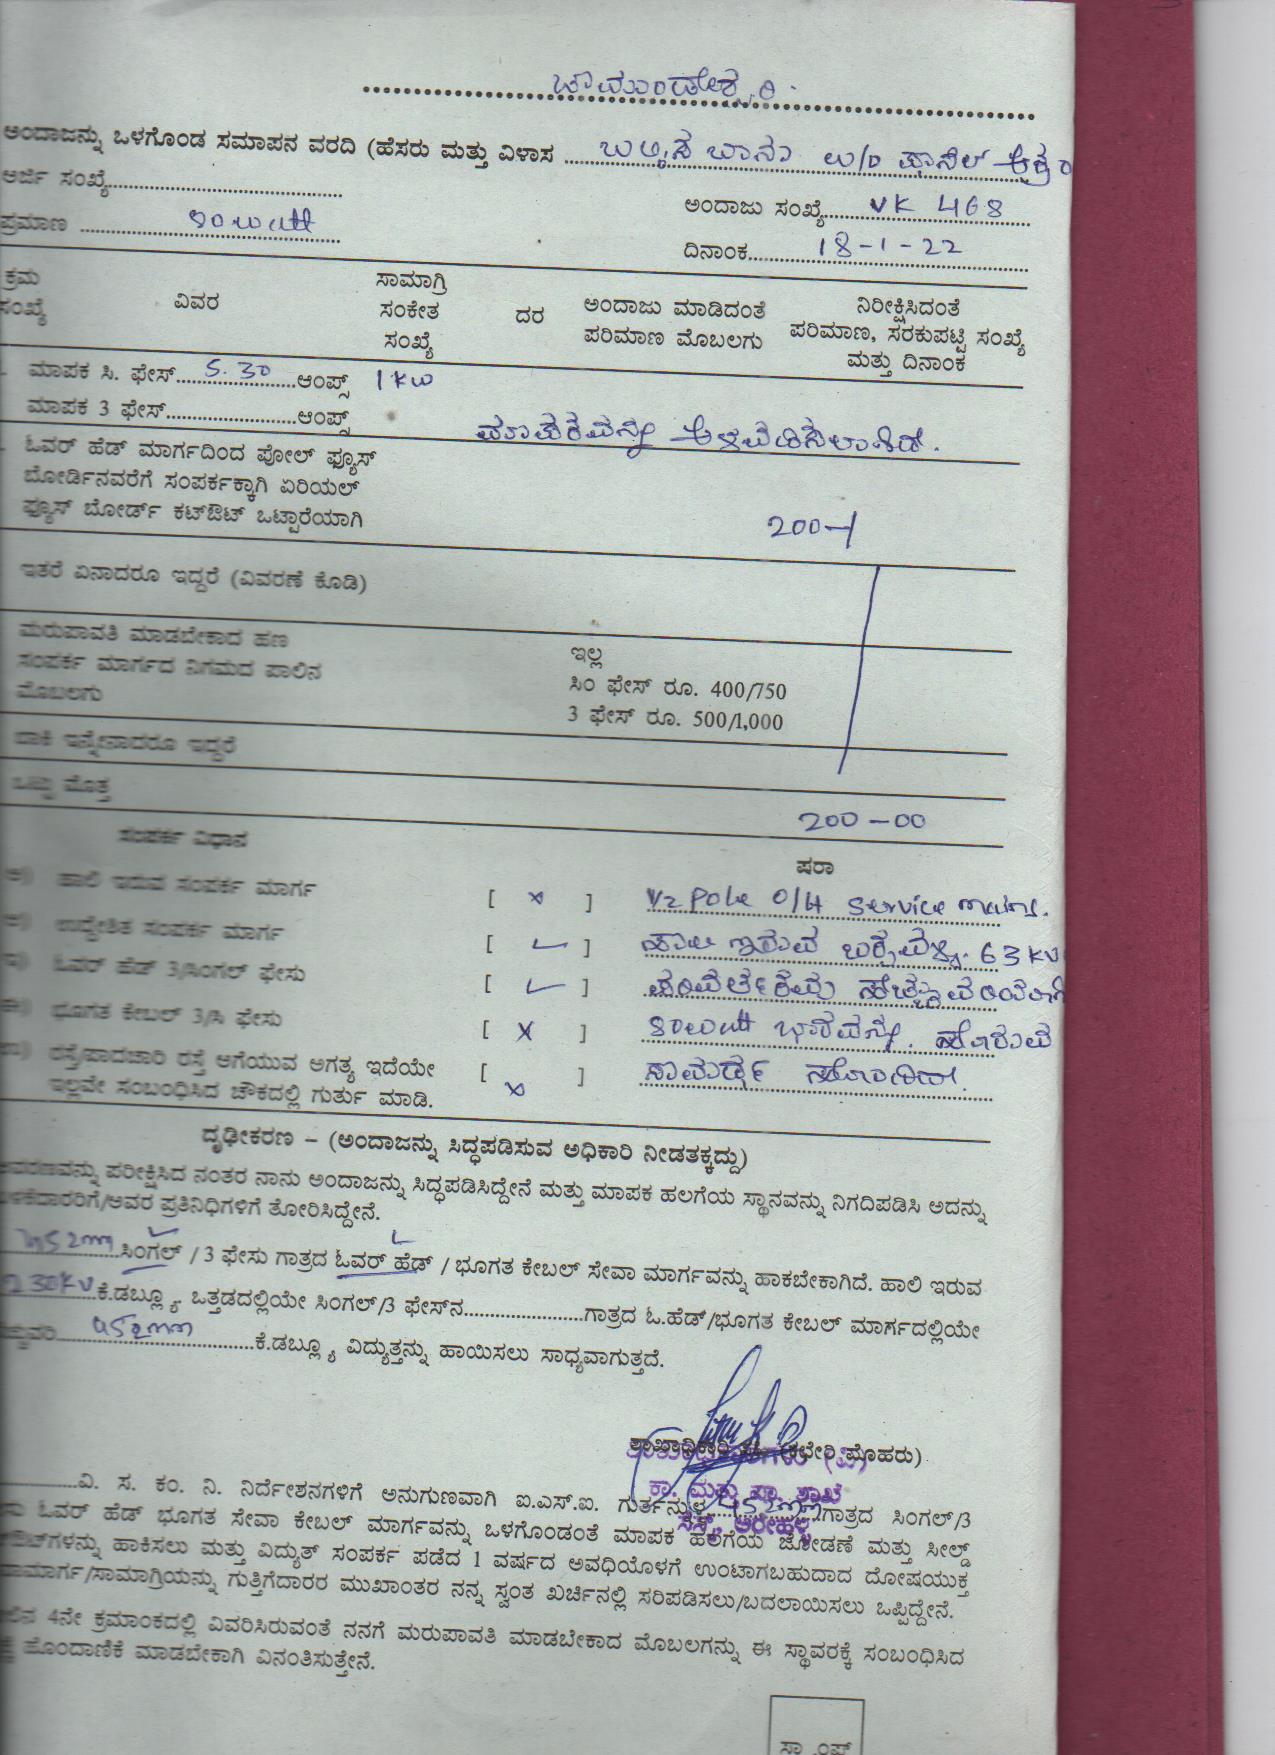 ಚಾಮುಂಡೇಶ್ವರಿ
ಅಂದಾಜನ್ನು ಒಳಗೊಂಡ ಸಮಾಪನ ವರದಿ (ಹೆಸರು ಮತ್ತು ವಿಳಾಸ ಬಾನು
ಅರ್ಜಿ ಸಂಖ್ಯೆ
ಅಂದಾಜು ಸಂಖ್ಯೆ VK 468
ಪ್ರಮಾಣ 80 watt
ದಿನಾಂಕ 18-1-22
ಕ್ರಮ ಸಂಖ್ಯೆ
ವಿವರ
ಸಾಮಾಗ್ರಿ ಸಂಕೇತ ಸಂಖ್ಯೆ
ದರ
ಅಂದಾಜು ಮಾಡಿದಂತೆ ಪರಿಮಾಣ ಮೊಬಲಗು
ನಿರೀಕ್ಷಿಸಿದಂತೆ ಪರಿಮಾಣ, ಸರಕುಪಟ್ಟಿ ಸಂಖ್ಯೆ ಮತ್ತು ದಿನಾಂಕ
ಮಾಪಕ ಸಿ. ಫೇಸ್ 5.30 ಆಂಪ್ಸ್ 1 KW
ಮಾಪಕ 3 ಫೇಸ್ ಆಂಪ್ಸ್
ಮಾಪಕವನ್ನು ಅಳವಡಿಸಲಾಗಿದೆ.
ಓವರ್ ಹೆಡ್ ಮಾರ್ಗದಿಂದ ಪೋಲ್ ಫ್ಯೂಸ್
ಬೋರ್ಡಿನವರೆಗೆ ಸಂಪರ್ಕಕ್ಕಾಗಿ ಏರಿಯಲ್
ಫ್ಯೂಸ್ ಬೋರ್ಡ್ ಕಟ್‌ಔಟ್ ಒಟ್ಟಾರೆಯಾಗಿ
200-/
ಇತರೆ ಏನಾದರೂ ಇದ್ದರೆ (ವಿವರಣೆ ಕೊಡಿ)
ಮರುಪಾವತಿ ಮಾಡಬೇಕಾದ ಹಣ
ಇಲ್ಲ
ಸಂಪರ್ಕ ಮಾರ್ಗದ ನಿಗಮದ ಪಾಲಿನ
ಸಿಂ ಫೇಸ್ ರೂ. 400/750
ಮೊಬಲಗು
3 ಫೇಸ್ ರೂ. 500/1,000
ಬಾಕಿ ಇನ್ನೇನಾದರೂ ಇದ್ದರೆ
ಒಟ್ಟು ಮೊತ್ತ
200-00
ಸಂಪರ್ಕ ವಿಧಾನ
ಷರಾ
ಹಾಲಿ ಇರುವ ಸಂಪರ್ಕ ಮಾರ್ಗ [ x ] 1/2 Pole O/H service mains.
ಉದ್ದೇಶಿತ ಸಂಪರ್ಕ ಮಾರ್ಗ [ ✓ ] ಹಾಲಿ ಇರುವ 63 KV
ಓವರ್ ಹೆಡ್ 3/ಸಿಂಗಲ್ ಫೇಸು [ ✓ ] ಪರಿವರ್ತಕವು
ಭೂಗತ ಕೇಬಲ್ 3/ಸಿ ಫೇಸು [ x ] 80 watt ಭಾರವನ್ನು ಹೊರುವ
ರಸ್ತೆ/ಪಾದಚಾರಿ ರಸ್ತೆ ಅಗೆಯುವ ಅಗತ್ಯ ಇದೆಯೇ [ x ] ಸಾಮರ್ಥ್ಯ ಹೊಂದಿದೆ.
ಇಲ್ಲವೇ ಸಂಬಂಧಿಸಿದ ಚೌಕದಲ್ಲಿ ಗುರ್ತು ಮಾಡಿ.
ದೃಢೀಕರಣ – (ಅಂದಾಜನ್ನು ಸಿದ್ಧಪಡಿಸುವ ಅಧಿಕಾರಿ ನೀಡತಕ್ಕದ್ದು)
ಪರೀಕ್ಷಿಸಿದ ನಂತರ ನಾನು ಅಂದಾಜನ್ನು ಸಿದ್ಧಪಡಿಸಿದ್ದೇನೆ ಮತ್ತು ಮಾಪಕ ಹಲಗೆಯ ಸ್ಥಾನವನ್ನು ನಿಗದಿಪಡಿಸಿ ಅದನ್ನು
ಪ್ರತಿನಿಧಿಗಳಿಗೆ ತೋರಿಸಿದ್ದೇನೆ.
ಸಿಂಗಲ್ / 3 ಫೇಸು ಗಾತ್ರದ ಓವರ್ ಹೆಡ್ / ಭೂಗತ ಕೇಬಲ್ ಸೇವಾ ಮಾರ್ಗವನ್ನು ಹಾಕಬೇಕಾಗಿದೆ. ಹಾಲಿ ಇರುವ
230KV ಕೆ.ಡಬ್ಲ್ಯೂ ಒತ್ತಡದಲ್ಲಿಯೇ ಸಿಂಗಲ್/3 ಫೇಸ್‌ನ ಗಾತ್ರದ ಓ.ಹೆಡ್/ಭೂಗತ ಕೇಬಲ್ ಮಾರ್ಗದಲ್ಲಿಯೇ
ಕೆ.ಡಬ್ಲ್ಯೂ ವಿದ್ಯುತ್ತನ್ನು ಹಾಯಿಸಲು ಸಾಧ್ಯವಾಗುತ್ತದೆ.
ಶಾಖಾಧಿಕಾರಿ (ಕಛೇರಿ ಮೊಹರು)
ಕಾ. ಮತ್ತು ಪಾ. ಶಾಖೆ
ವಿ. ಸ. ಕಂ. ನಿ. ನಿರ್ದೇಶನಗಳಿಗೆ ಅನುಗುಣವಾಗಿ ಐ.ಎಸ್.ಐ. ಗುರ್ತನ್ನುಳ್ಳ ಗಾತ್ರದ ಸಿಂಗಲ್/3
ಓವರ್ ಹೆಡ್ ಭೂಗತ ಸೇವಾ ಕೇಬಲ್ ಮಾರ್ಗವನ್ನು ಒಳಗೊಂಡಂತೆ ಮಾಪಕ ಹಲಗೆಯ ಜೋಡಣೆ ಮತ್ತು ಸೀಲ್ಡ್
ಹಾಕಿಸಲು ಮತ್ತು ವಿದ್ಯುತ್ ಸಂಪರ್ಕ ಪಡೆದ 1 ವರ್ಷದ ಅವಧಿಯೊಳಗೆ ಉಂಟಾಗಬಹುದಾದ ದೋಷಯುಕ್ತ
ಗುತ್ತಿಗೆದಾರರ ಮುಖಾಂತರ ನನ್ನ ಸ್ವಂತ ಖರ್ಚಿನಲ್ಲಿ ಸರಿಪಡಿಸಲು/ಬದಲಾಯಿಸಲು ಒಪ್ಪಿದ್ದೇನೆ.
4ನೇ ಕ್ರಮಾಂಕದಲ್ಲಿ ವಿವರಿಸಿರುವಂತೆ ನನಗೆ ಮರುಪಾವತಿ ಮಾಡಬೇಕಾದ ಮೊಬಲಗನ್ನು ಈ ಸ್ಥಾವರಕ್ಕೆ ಸಂಬಂಧಿಸಿದ
ಹೊಂದಾಣಿಕೆ ಮಾಡಬೇಕಾಗಿ ವಿನಂತಿಸುತ್ತೇನೆ.